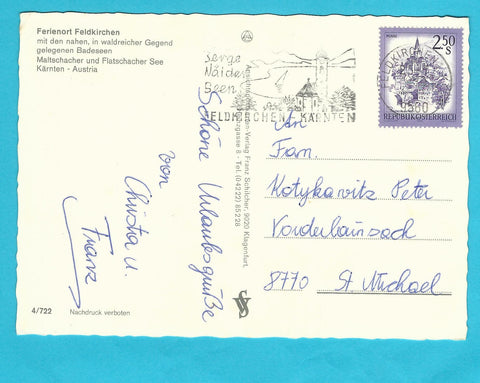 Ferienort Feldkirchen
mit den nahen, in waldreicher Gegend
gelegenen Badeseen
Maltschacher und Flatschacher See
Kärnten - Austria
Berge
Wälder
Seen
FELDKIRCHEN KÄRNTEN
FELDKIRCHEN
9560
2.50
S
REPUBLIK ÖSTERREICH
Schöne Urlaubsgrüße
von
Christa u.
Franz
Ansichtskarten-Verlag Franz Schilcher, 9020 Klagenfurt,
gasse 8 - Tel. (04222) 85228
An
Fam.
Kotykawitz Peter
Vorderlainsach
8770 St Michael
4/722
Nachdruck verboten